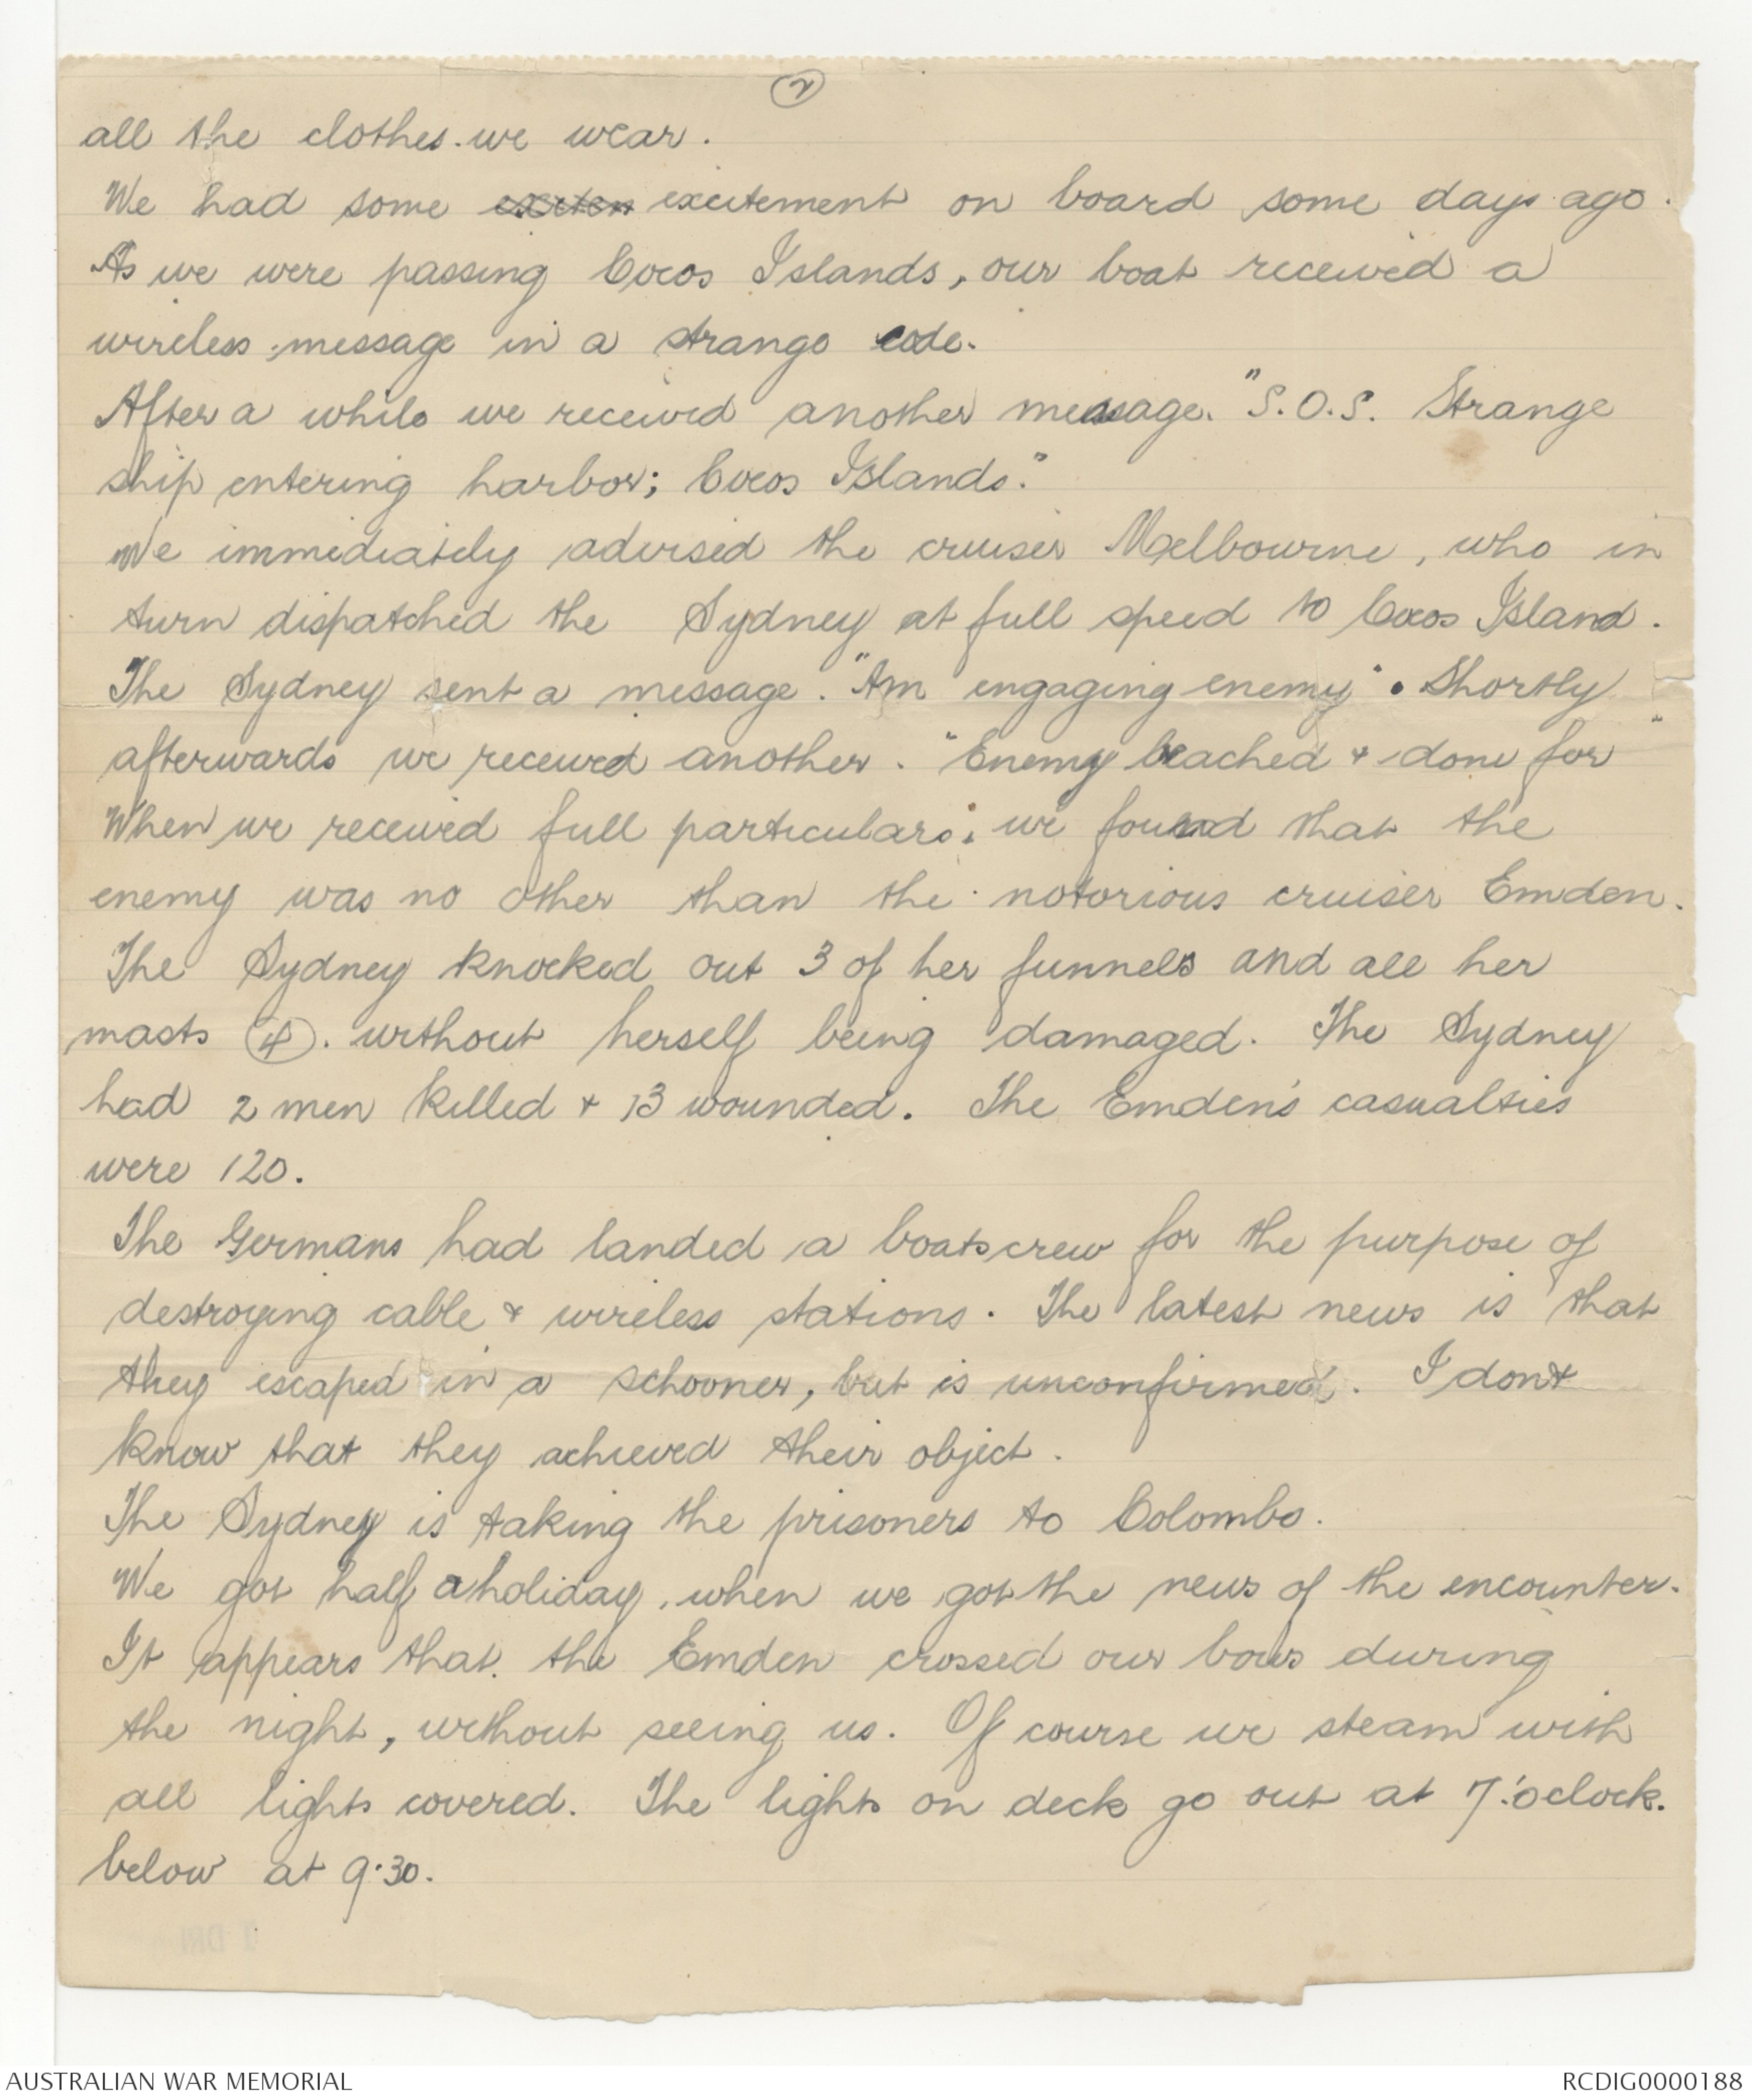 2
all the clothes we wear.
We had some exciten excitement on board some days ago.
As we were passing Cocos Islands, our boat received a
wireless message in a strange code.
After a while we received another message. "S.O.S. Strange
ship entering harbor; Cocos Islands."
We immediately advised the cruiser Melbourne, who in
turn dispatched the Sydney at full speed to Cocos Island.
The Sydney sent a message. "Am engaging enemy". Shortly
afterwards we received another. "Enemy beached & done for"
When we received full particulars; we found that the
enemy was no other than the notorious cruiser Emden.
The Sydney knocked out 3 of her funnels and all her
masts (4). without herself being damaged. The Sydney
had 2 men killed & 13 wounded. The Emden's casualties
were 120.
The Germans had landed a boatscrew for the purpose of
destroying cable & wireless stations. The latest news is that
they escaped in a schooner, but is unconfirmed. I dont
know that they achieved their object.
The Sydney is taking the prisoners to Colombo.
We got half a holiday, when we got the news of the encounter.
It appears that the Emden crossed our bows during
the night, without seeing us. Of course we steam with
all lights covered. The lights on deck go out at 7.'oclock.
below at 9.30.
AUSTRALIAN WAR MEMORIAL RCDIG0000188